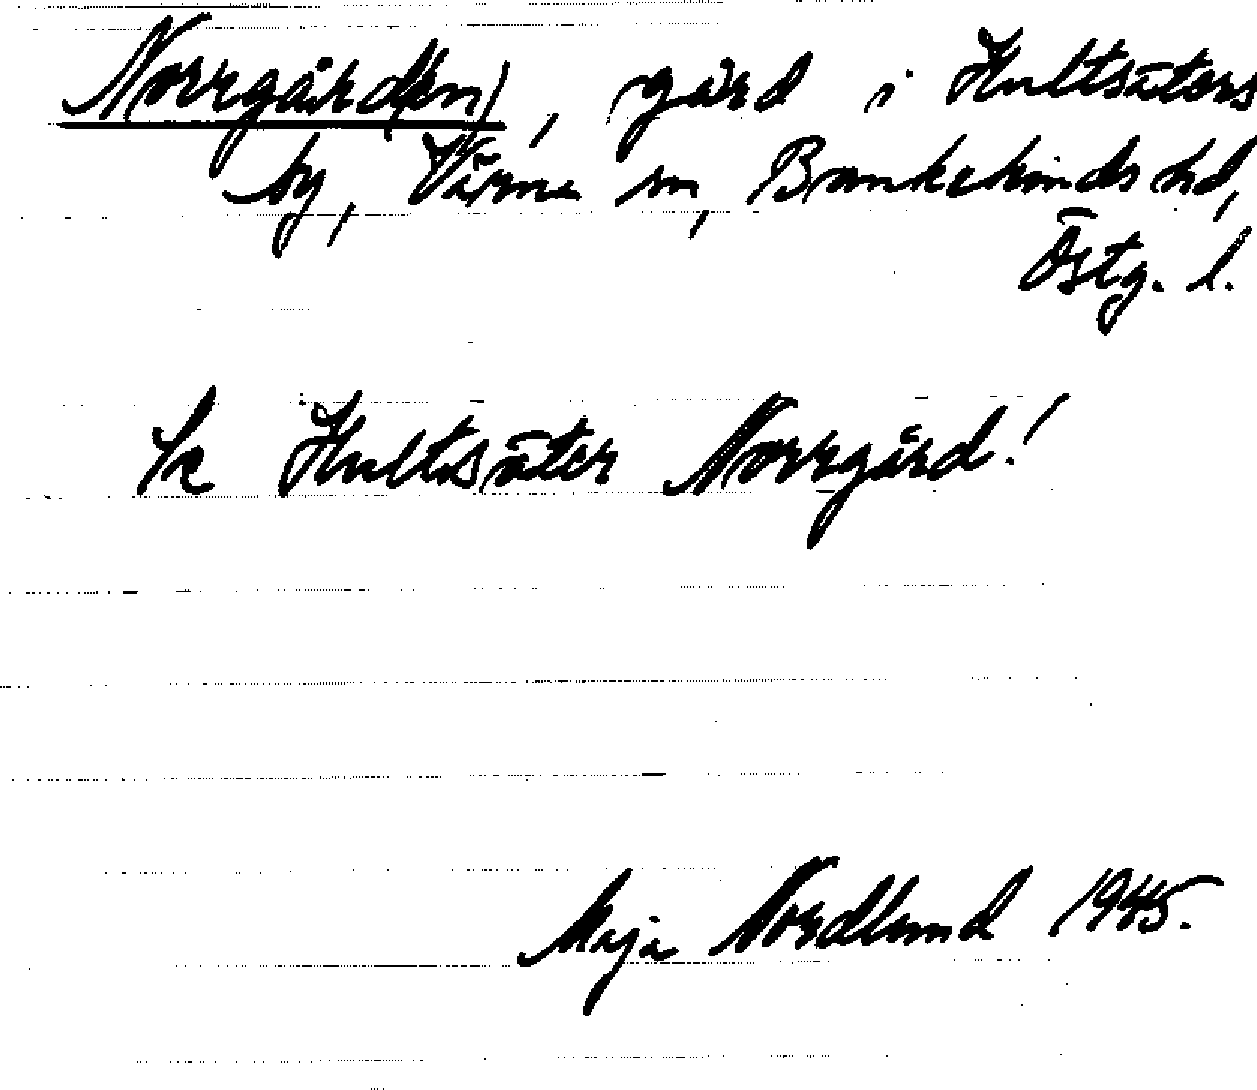 Norrgård(en), gård i Hultsäters
by, Värna sn, Bankekinds hd,
Östg. l.
Se Hultsäter Norrgård!
Maja Nordlund 1945.